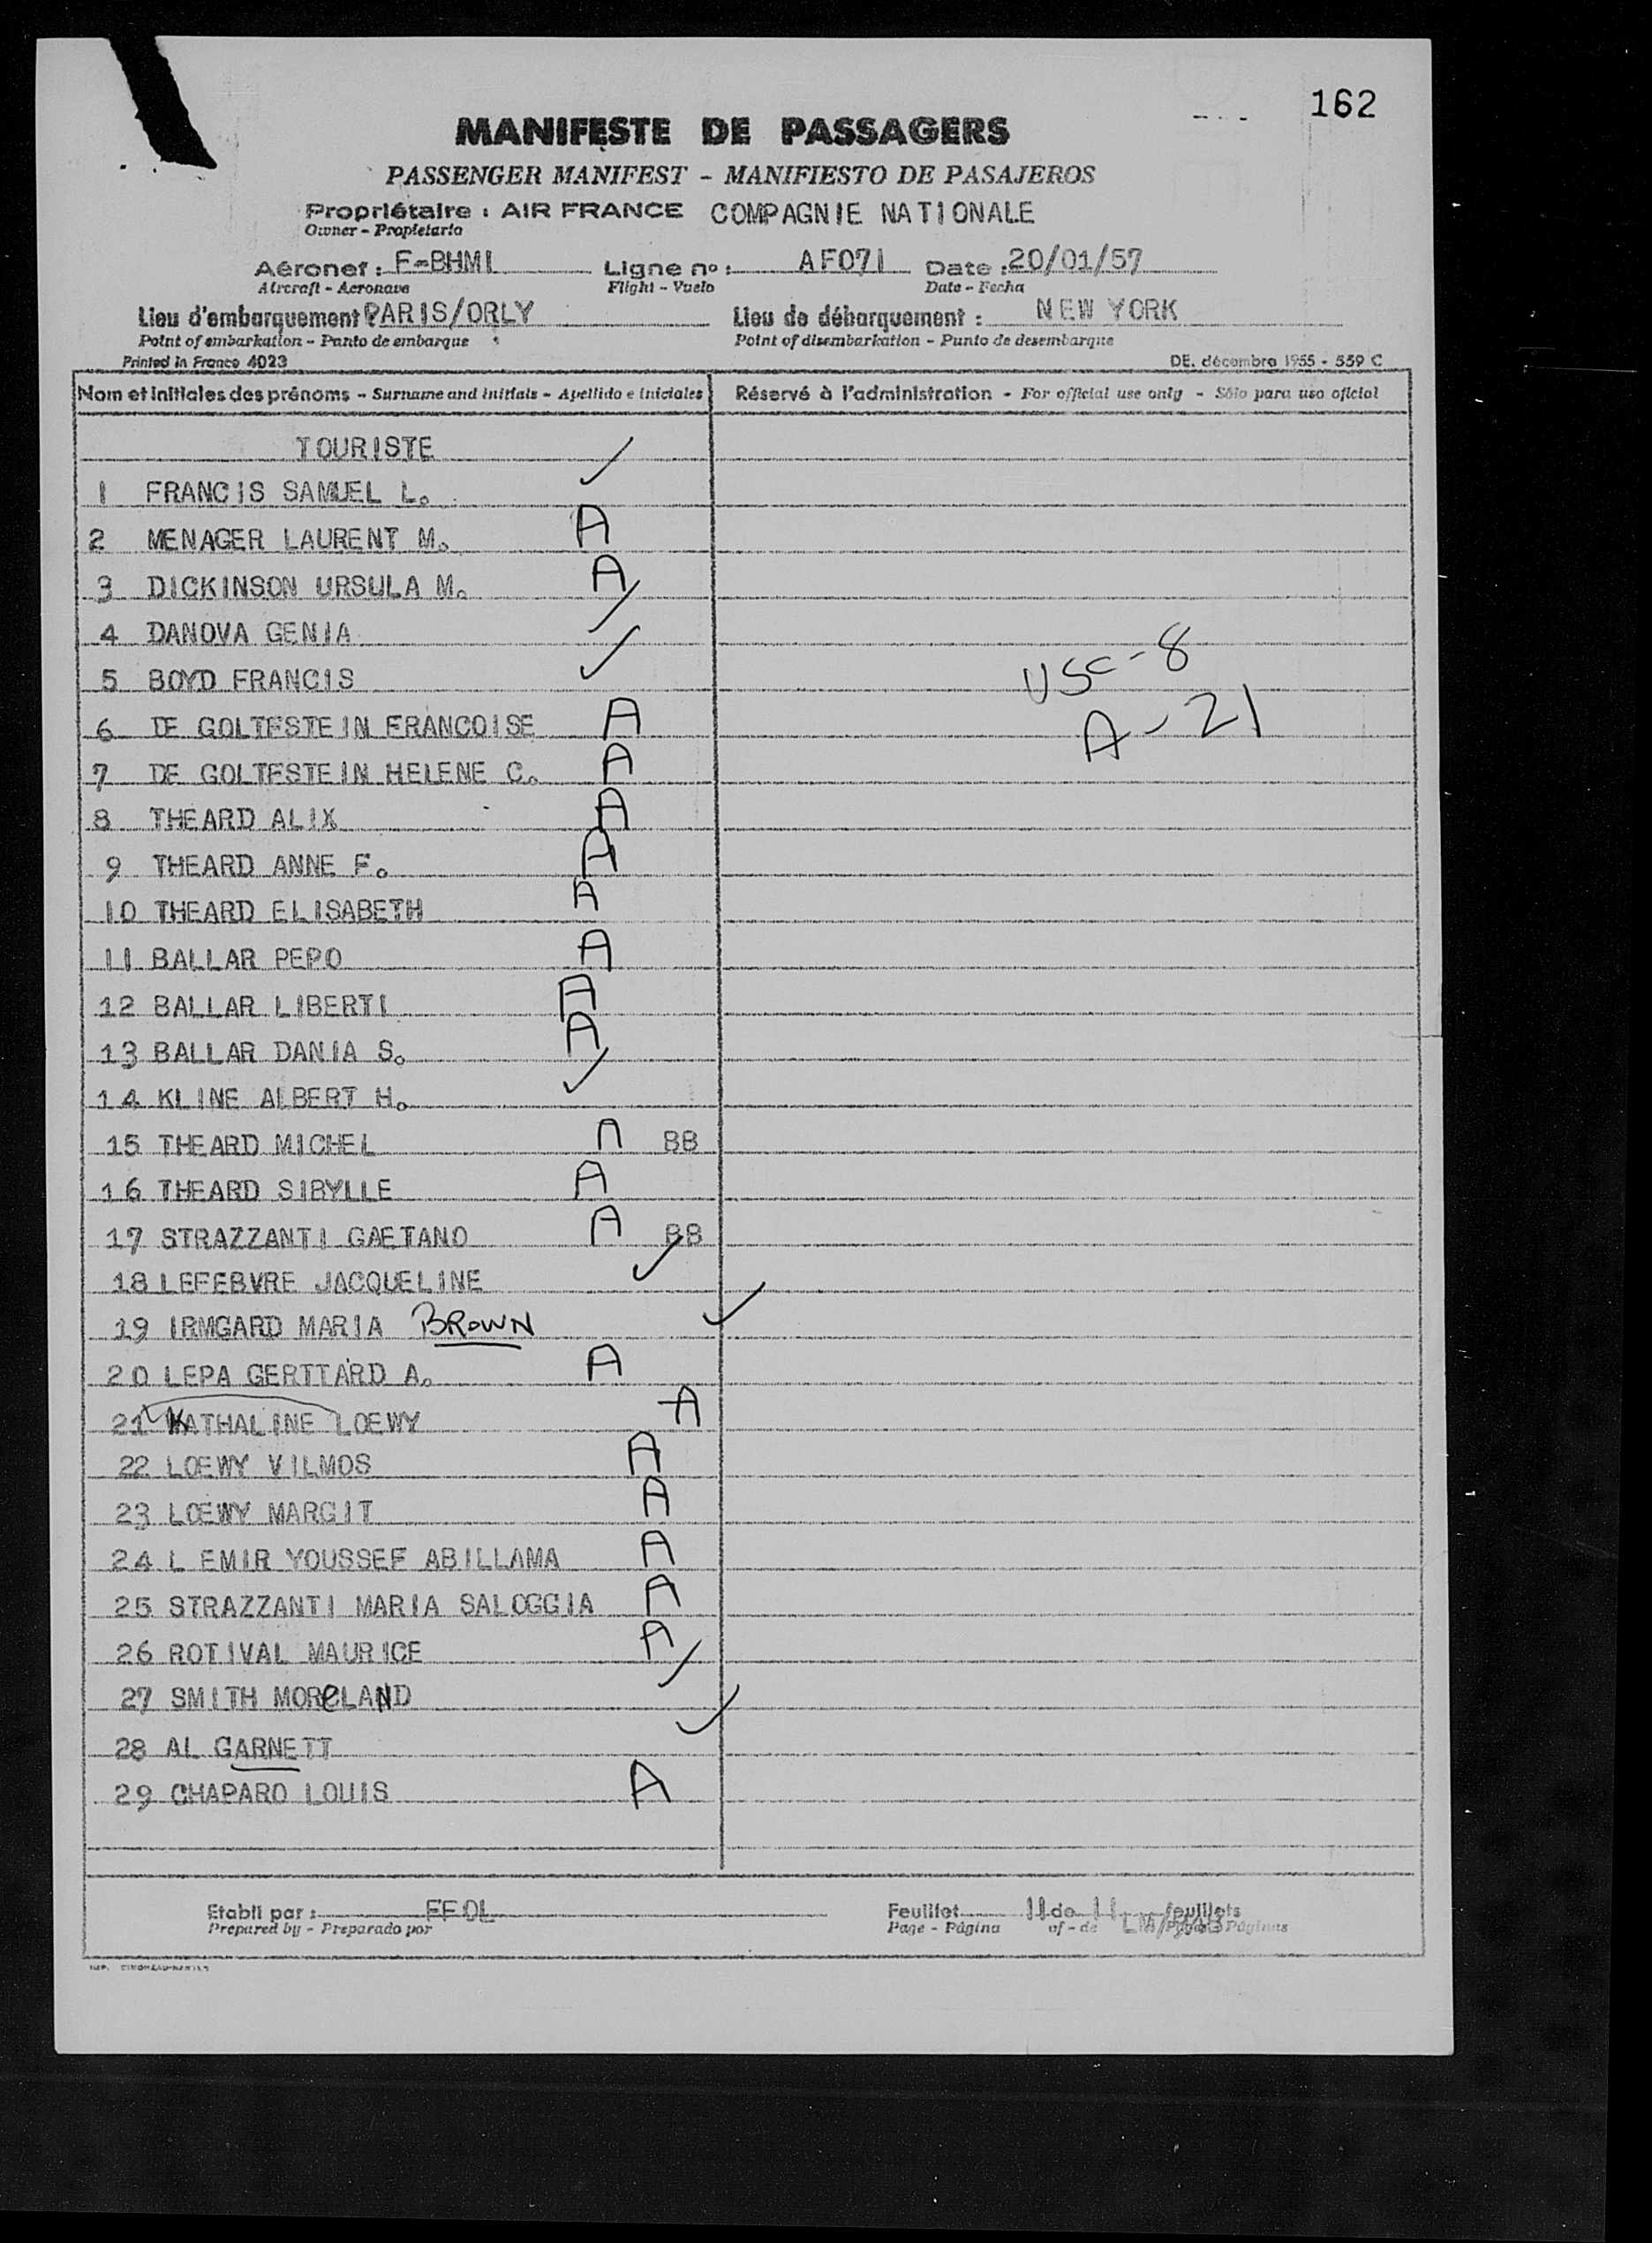 162
MANIFESTE DE PASSAGERS
PASSENGER MANIFEST - MANIFIESTO DE PASAJEROS
Propriétaire : AIR FRANCE COMPAGNIE NATIONALE
Owner - Propietario
Aéronef : F-BHMI Ligne nº : AF071 Date : 20/01/57
Aircraft - Aeronave Flight - Vuelo Date - Fecha
Lieu d'embarquement PARIS/ORLY Lieu de débarquement : NEW YORK
Point of embarkation - Punto de embarque Point of disembarkation - Punto de desembarque
Printed in France 4023 DE. décembre 1955 - 559 C
Nom et initiales des prénoms - Surname and initials - Apellido e iniciales Réservé à l'administration - For official use only - Sólo para uso oficial
TOURISTE
1 FRANCIS SAMUEL L. ✓
2 MENAGER LAURENT M. A
3 DICKINSON URSULA M. A
4 DANOVA GENIA ✓
5 BOYD FRANCIS ✓ USC-8
6 DE GOLTESTEIN FRANCOISE A A-21
7 DE GOLTESTEIN HELENE C. A
8 THEARD ALIX A
9 THEARD ANNE F. A
10 THEARD ELISABETH A
11 BALLAR PEPO A
12 BALLAR LIBERTI A
13 BALLAR DANIA S. A
14 KLINE ALBERT H. ✓
15 THEARD MICHEL A BB
16 THEARD SIBYLLE A
17 STRAZZANTI GAETANO A BB
18 LEFEBVRE JACQUELINE ✓
19 IRMGARD MARIA BROWN ✓
20 LEPA GERTTARD A. A
21 KATHALINE LOEWY A
22 LOEWY VILMOS A
23 LOEWY MARGIT A
24 L EMIR YOUSSEF ABILLAMA A
25 STRAZZANTI MARIA SALOGGIA A
26 ROTIVAL MAURICE A
27 SMITH MORELAND ✓
28 AL GARNETT ✓
29 CHAPARO LOUIS A
Etabli par : FFOL Feuillet 11 de 11 feuillets
Prepared by - Preparado por Page - Página of - de Páginas